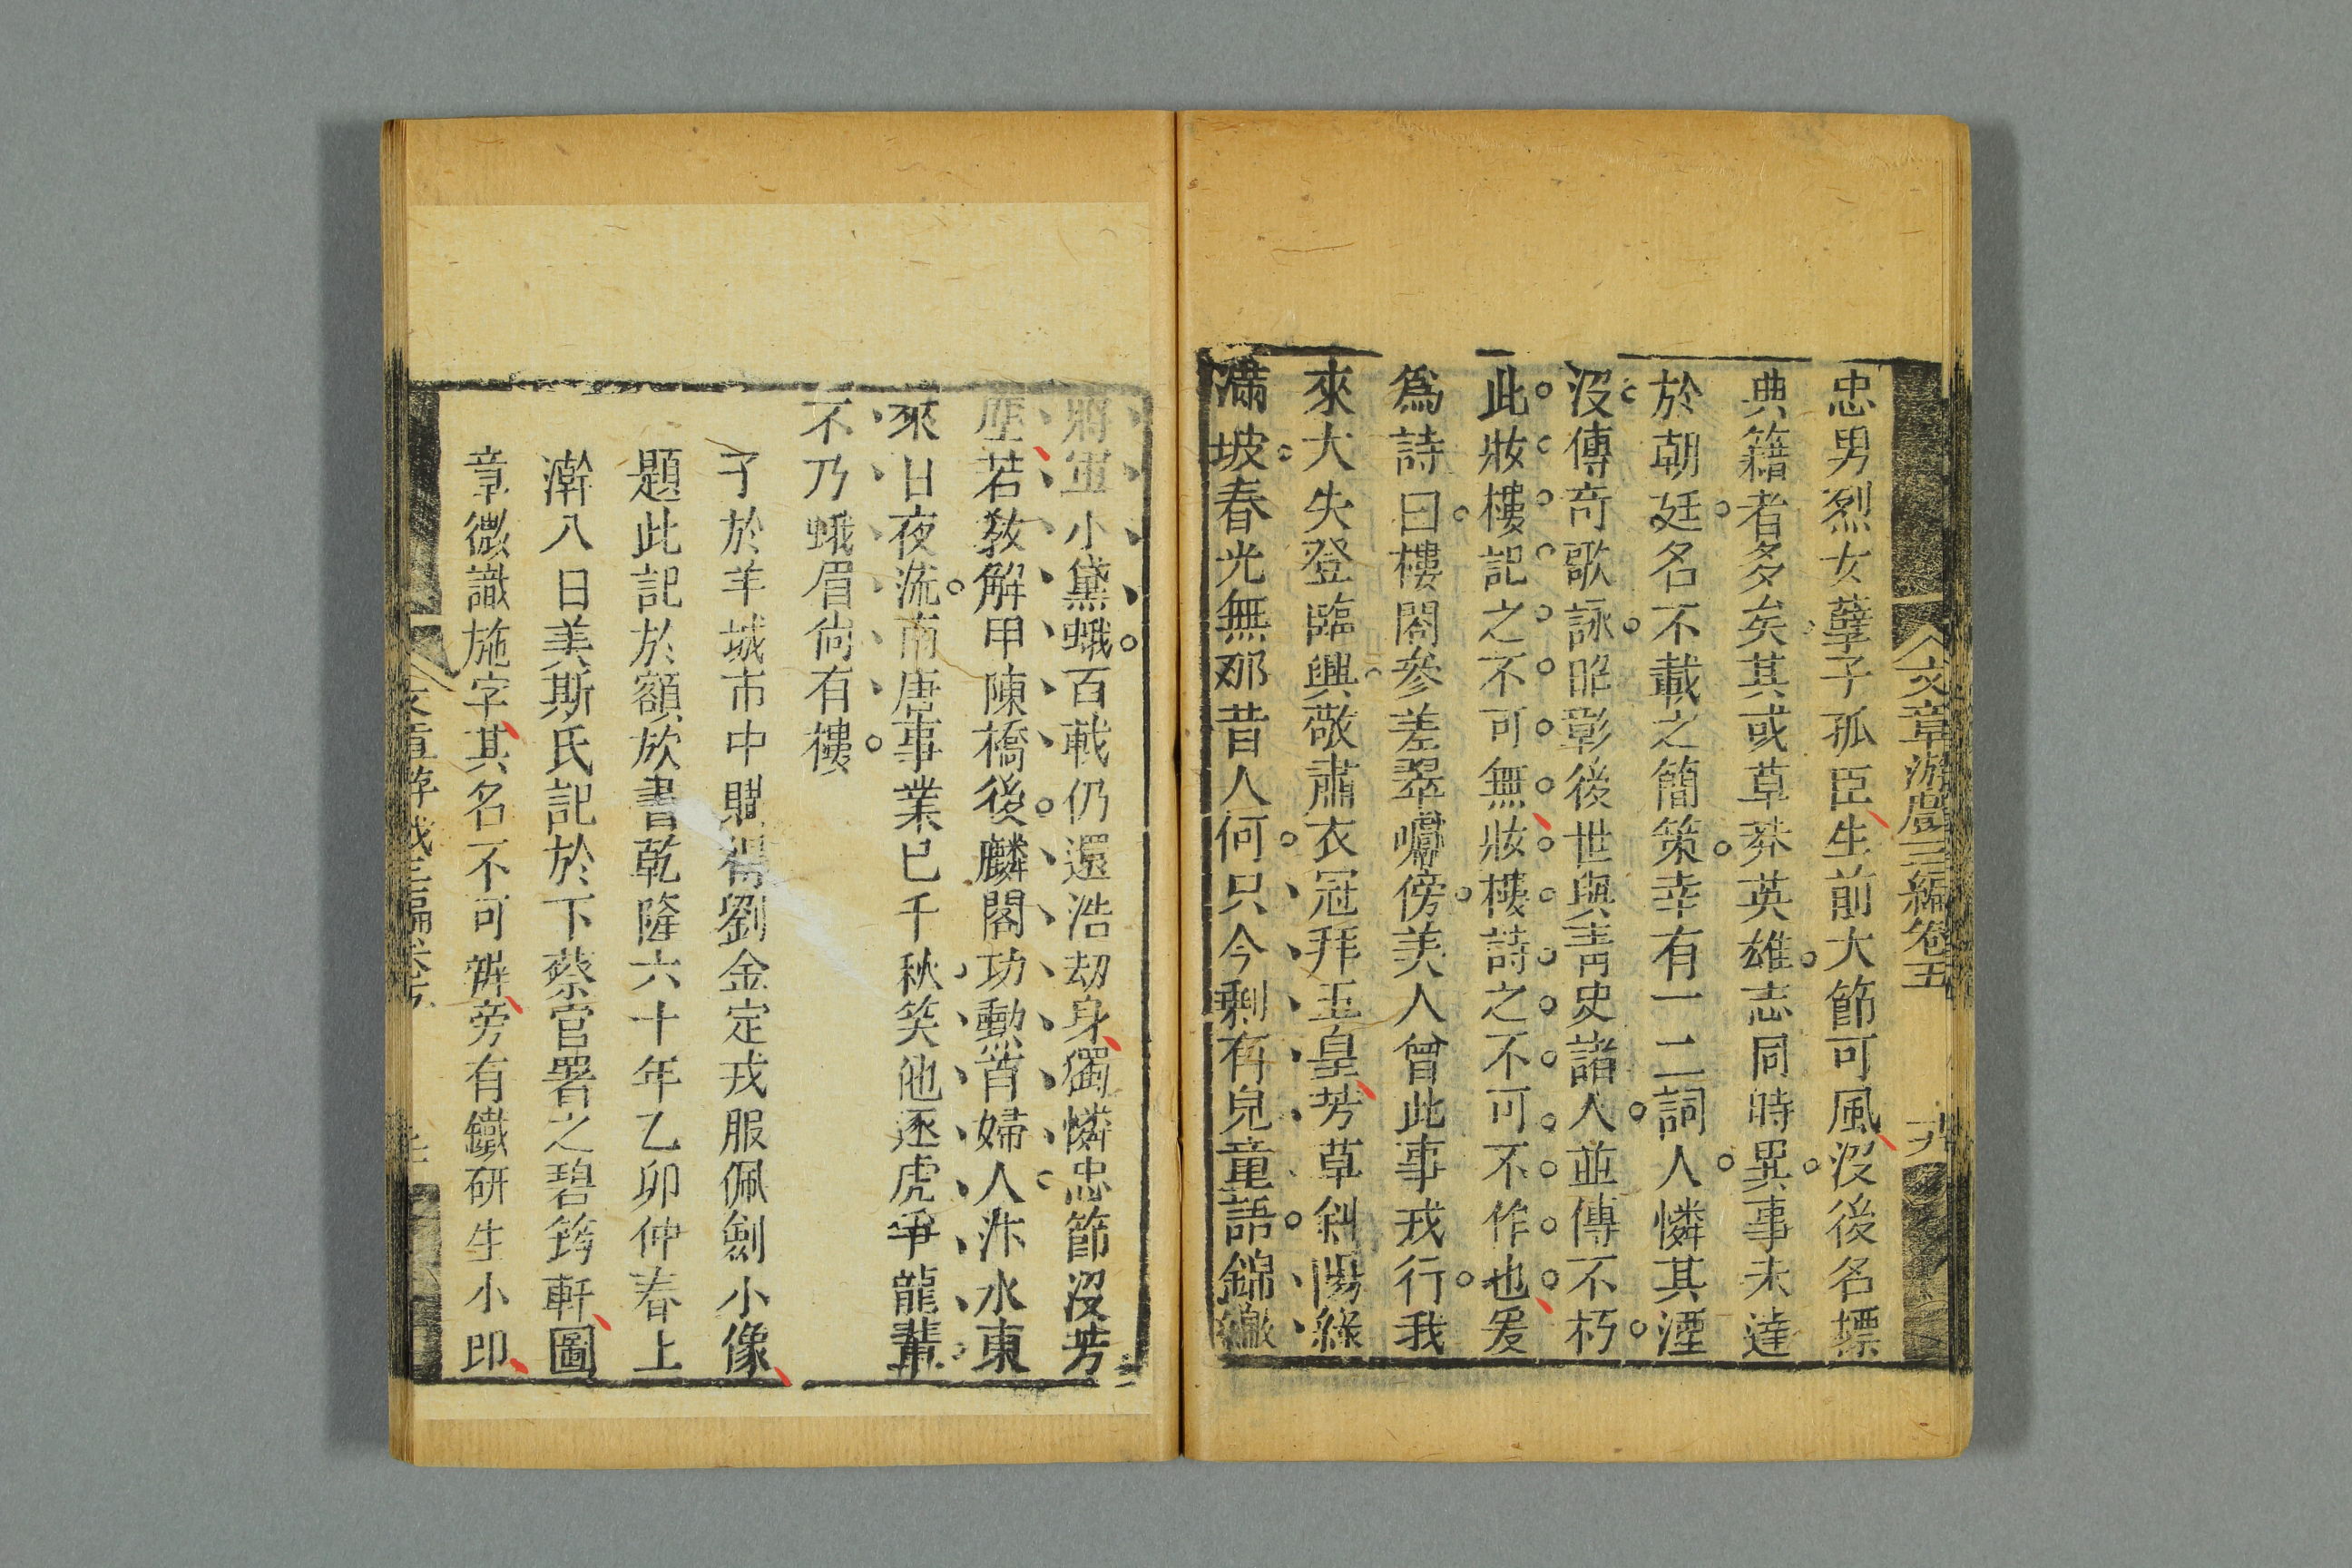 文章游戲三編卷五
忠男烈女孽子孤臣生前大節可風沒後名標
典籍者多矣其或草莽英雄志同時異事未達
於朝廷名不載之簡策幸有一二詞人憐其湮
沒傳奇歌詠昭彰後世與靑史諸人並傳不朽
此妝樓記之不可無妝樓詩之不可不作也爰
爲詩曰樓閣參差翠巘傍美人曾此事戎行我
來大失登臨興敬肅衣冠拜玉皇芳草斜陽綠
滿坡春光無那昔人何只今剩有兒童語錦繖
將軍小黛蛾百戰仍還浩劫身獨憐忠節沒芳
塵若教解甲陳橋後麟閣功勳首婦人汴水東
來日夜流南唐事業已千秋笑他逐虎爭龍輩
不乃蛾眉尙有樓
予於羊城市中購得劉金定戎服佩劍小像
題此記於額欵書乾隆六十年乙卯仲春上
澣八日美斯氏記於下蔡官署之碧筠軒圖
章微識施字其名不可辨旁有鐵研生小印